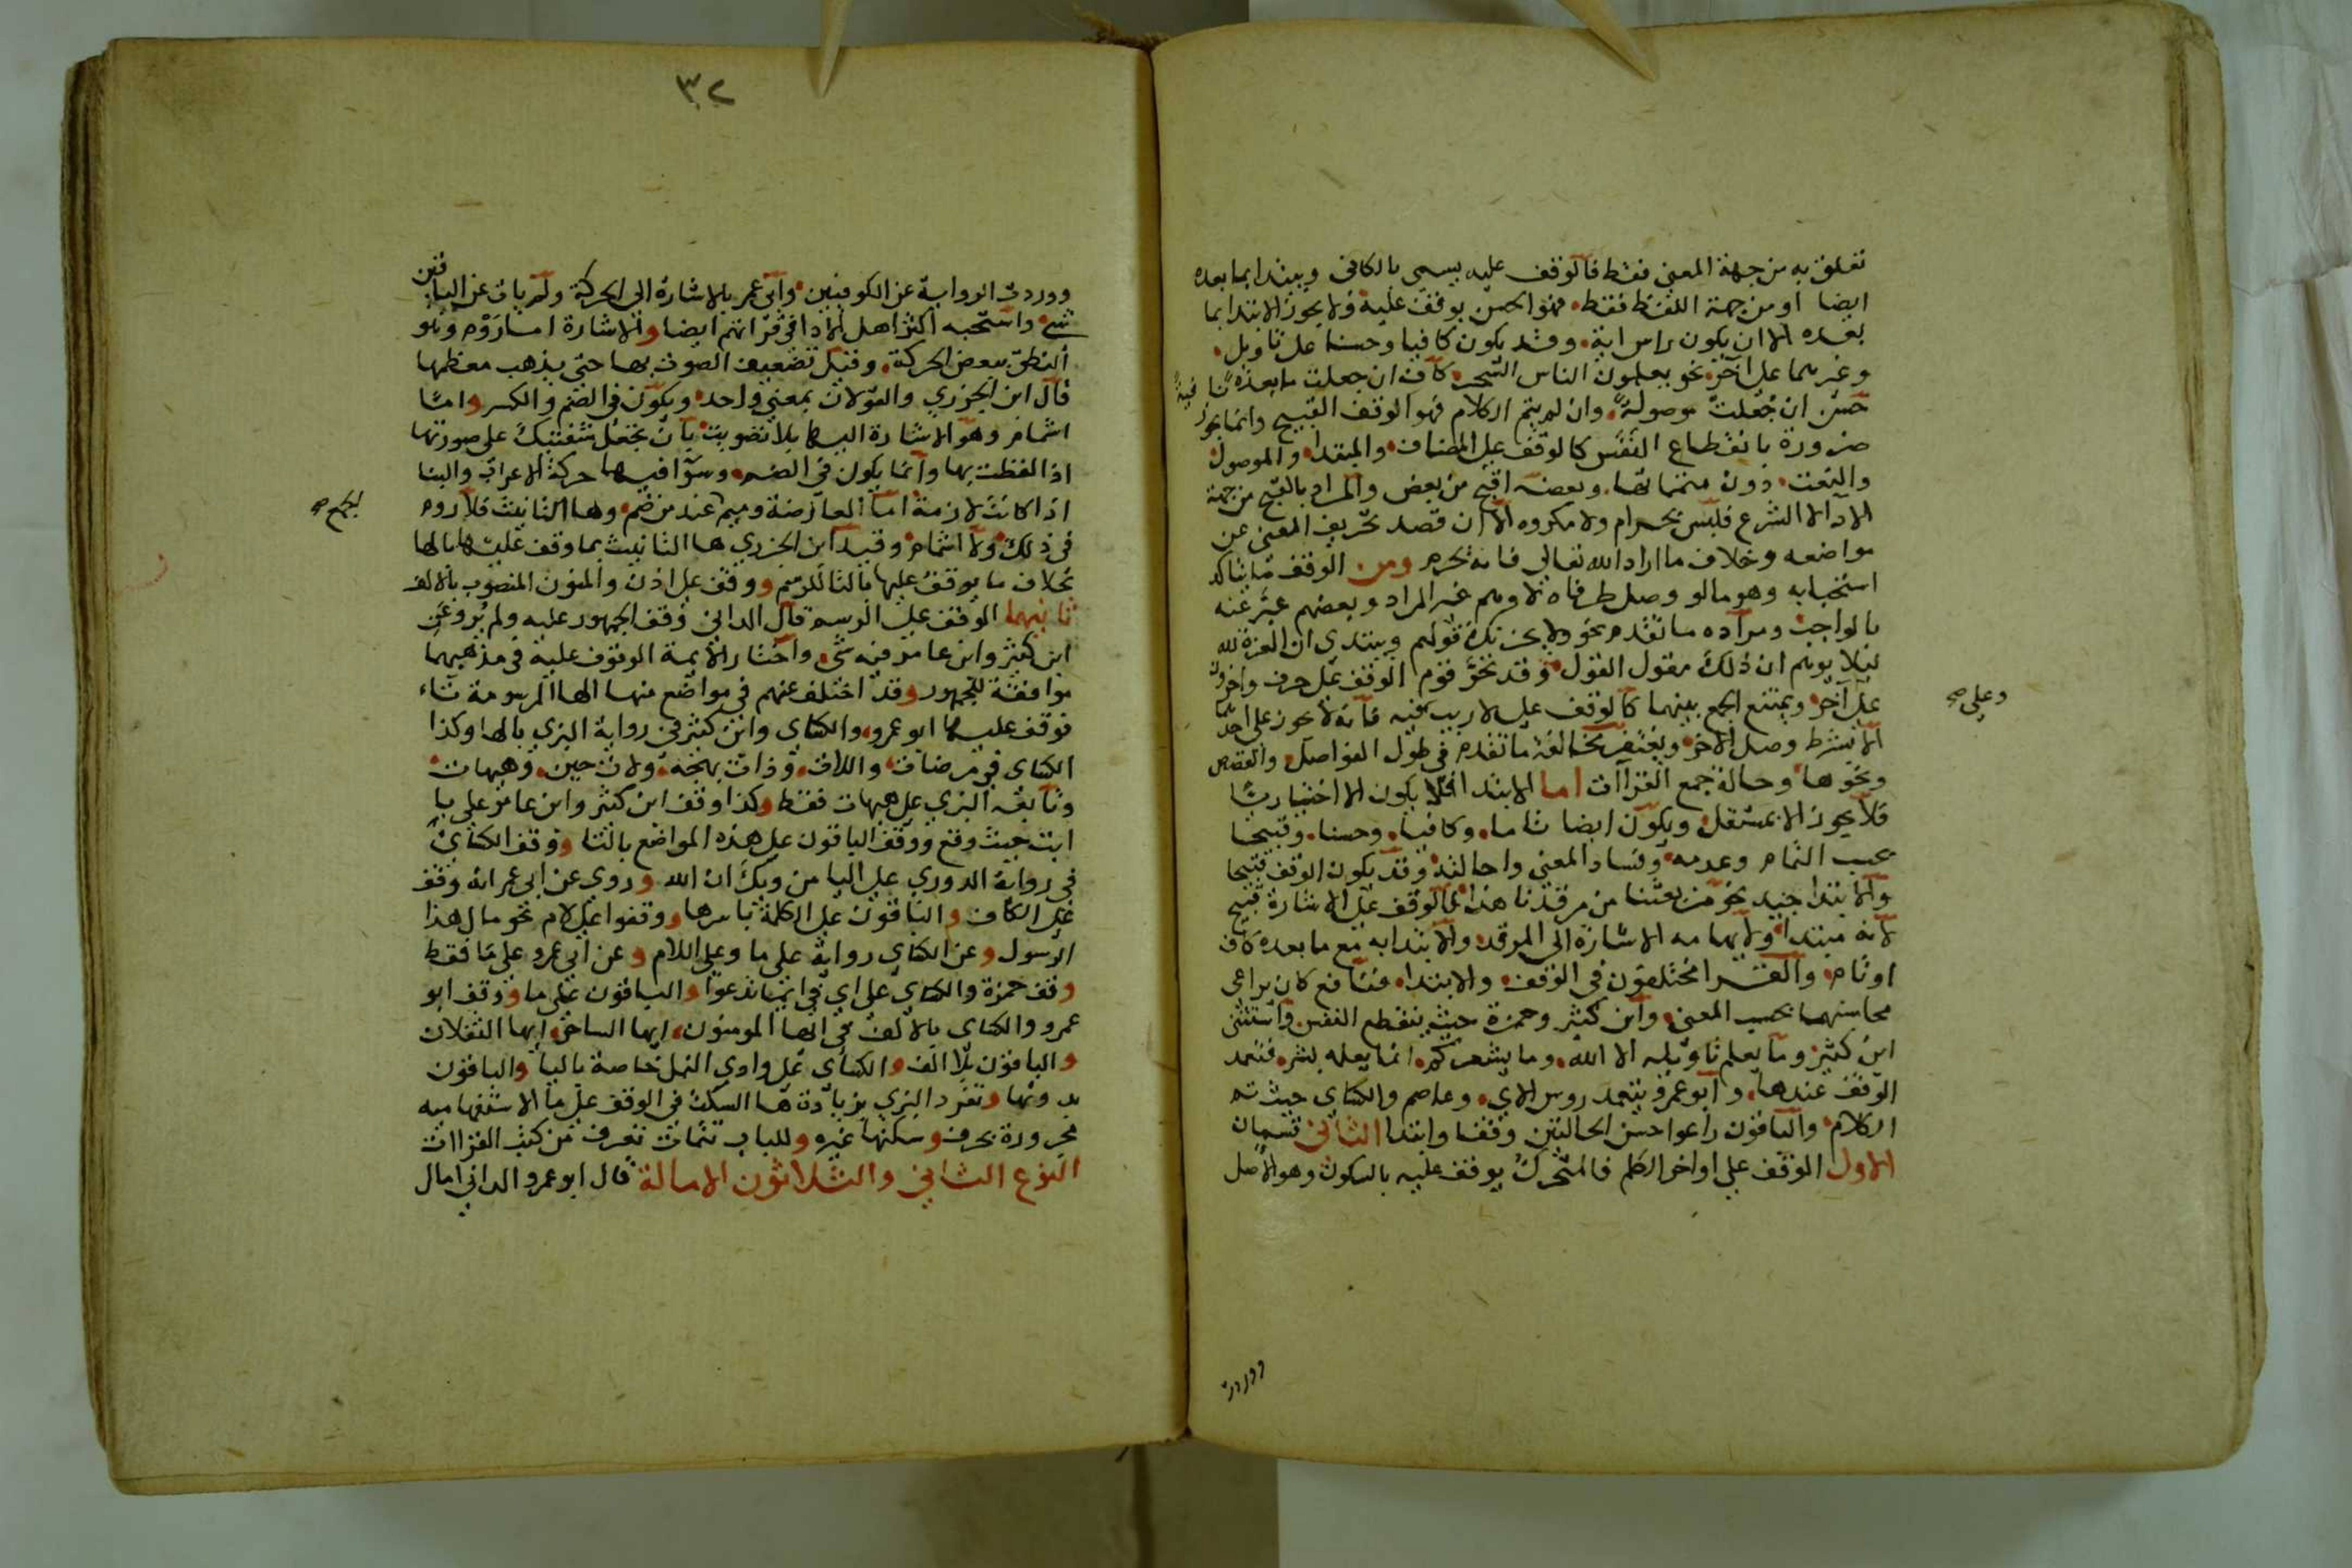 تعلق به من جهة المعنى فقط فالوقف عليه يسمى بالكافى ويبتدا بما بعده
ايضا او من جهة اللفظ فقط فهو الحسن يوقف عليه ولا يجوز الابتدا بما
بعده الا ان يكون راس اية وقد يكون كافيا وحسنا على تاويل
وغيرهما على آخر نحو يعلمون الناس السحر كاف ان جعلت ما بعده نافية
حسن ان جعلت موصولة وان لم يتم الكلام فهو الوقف القبيح وانما يجوز
ضرورة بانقطاع النفس كالوقف على المضاف والمبتدا والموصول
والنعت دون متماتها وبعضه اقبح من بعض والمراد بالقبح من جهة
الادا لا الشرع فليس بحرام ولا مكروه الا ان قصد تحريف المعنى عن
مواضعه وخلاف ما اراد الله تعالى فانه يحرم ومن الوقف ما يتاكد
استحبابه وهو ما لو وصل طرفاه لاوهم غير المراد وبعضهم عبر عنه
بالواجب ومراده ما تقدم نحو ولا يحزنك قولهم ويبتدي ان العزة لله
ليلا يوهم ان ذلك مقول القول وقد نحو قوم الوقف على حرف واخرون
على آخر ويمتنع الجمع بينهما كالوقف على لا ريب فيه فانه لا يجوز على احدهما
وعلى صح
الا بشرط وصل الاخر ويغتفر مخالفة ما تقدم في طول الفواصل والقصص
ونحوها وحالة جمع القراآت اما الابتدا فلا يكون الا اختياريا
فلا يجوز الا بمستقل ويكون ايضا تاما وكافيا وحسنا وقبيحا
بحسب التمام وعدمه وفساد المعنى واحالته وقد يكون الوقف قبيحا
والابتدا جيد نحو من بعثنا من مرقدنا هذا فالوقف على الاشارة قبيح
لانه مبتدا ولايهامه الاشارة الى المرقد والابتدا به مع ما بعده كاف
او تام والقرا مختلفون في الوقف والابتدا فنافع كان يراعى
محاسنهما بحسب المعنى وابن كثير وحمزة حيث ينقطع النفس واستثنى
ابن كثير وما يعلم تاويله الا الله وما يشعركم انما يعلمه بشر فتعمد
الوقف عندها وابو عمرو يتعمد روس الاي وعاصم والكساي حيث تم
الكلام والباقون راعوا حسن الحالتين وقفا وابتدا الثانى قسمان
الاول الوقف على اواخر الكلم فالمتحرك يوقف عليه بالسكون وهو الاصل
ووردت
٣٢
ووردت الرواية عن الكوفيين وابى عمر بالاشارة الى الحركة ولم يات عن الباقين
شي واستحبه اكثر اهل الادا فى قراتهم ايضا والاشارة اما روم وهو
النطق ببعض الحركة وقيل تضعيف الصوت بها حتى يذهب معظمها
قال ابن الجزري والقولان بمعنى واحد ويكون فى الضم والكسر واما
اشمام وهو الاشارة اليها بلا تصويت بان تجعل شفتيك على صورتها
اذا لفظت بها وانما يكون فى الضم وسوا فيهما حركة الاعراب والبنا
اذا كانت لازمة اما العارضة وميم عند من ضم وها التانيث فلا روم
لجمع صح
فى ذلك ولا اشمام وقيد ابن الجزري ها التانيث بما وقف عليها بالها
بخلاف ما يوقف عليها بالتا للرسم ووقف على اذن والمنون المنصوب بالالف
ثانيهما الوقف على الرسم قال الدانى وقف الجمهور عليه ولم يرو عن
ابن كثير وابن عامر فيه شي واختار الايمة الوقوف عليه فى مذهبيهما
موافقة للجمهور وقد اختلف عنهم فى مواضع منها الها المرسومة تاء
فوقف عليها ابو عمرو والكساي وابن كثير فى رواية البزي بالها وكذا
الكساى فى مرضات واللات وذات بهجة ولات حين وهيهات
وتابعه البزي على هيهات فقط وكذا وقف ابن كثير وابن عامر على يا
ابت حيث وقع ووقف الباقون على هذه المواضع بالتا ووقف الكساي
في رواية الدوري على اليا من ويك ان الله وروى عن ابى عمر انه وقف
على الكاف والباقون على الكلمة باسرها ووقفوا على لام نحو مال هذا
الرسول وعن الكساي رواية على ما وعلى اللام وعن ابى عمرو على ما فقط
وقف حمزة والكساي على اى فى اياما تدعوا والباقون على ما ووقف ابو
عمرو والكساي بالالف فى ايها المومنون ايها الساحر ايها الثقلان
والباقون بلا الف والكساي على وادى النمل خاصة باليا والباقون
بدونها وتفرد البزي بزيادة ها السكت فى الوقف على ما الاستفهامية
مجرورة بحرف وسكنها غيره وللباب تتمات تعرف من كتب القراات
النوع الثانى والثلاثون الامالة قال ابو عمرو الدانى امال